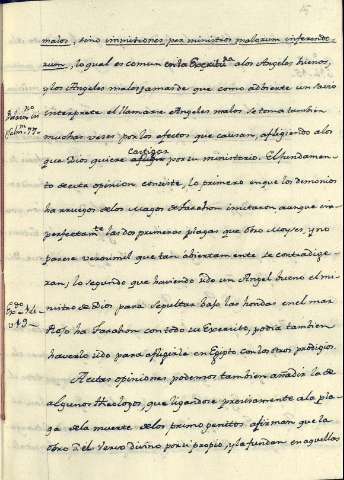 malos, sino inmisiones per ministros malorum inferendorum
rum, lo qual es comun en la Escritu.ra a los Angeles buenos,
y los Angeles malos, amas de que como advierte un savio
interprete el llamarse Angeles malos se toma tambien
muchas veces por los efectos que causan, afligiendo a los
castigar
que Dios quiere afligir por su ministerio. El fundamen-
to de esta opinion consiste, lo primero en que los demonios
ha rruegos de los Magos de Farahon imitaron aunque im-
perfectam.te las dos primeras plagas que obro Moyses, y no
parece verosimil que tan abiertamente se contradige-
ran; lo segundo que haviendo sido un Angel bueno el mi-
nistro de Dios para sepultar bajo las hondas en el mar
Rojo ha Farahon con todo su Exercito, podia tambien
haverlo sido para afligirle en Egipto con los otros prodigios.
A estas opiniones podemos tambien añadir la de
algunos theologos, que ligandose precisamente a la pla-
ga de la muerte de los primogenitos afirman que la
obro el Verbo divino por si propio, y la fundan en aquellas